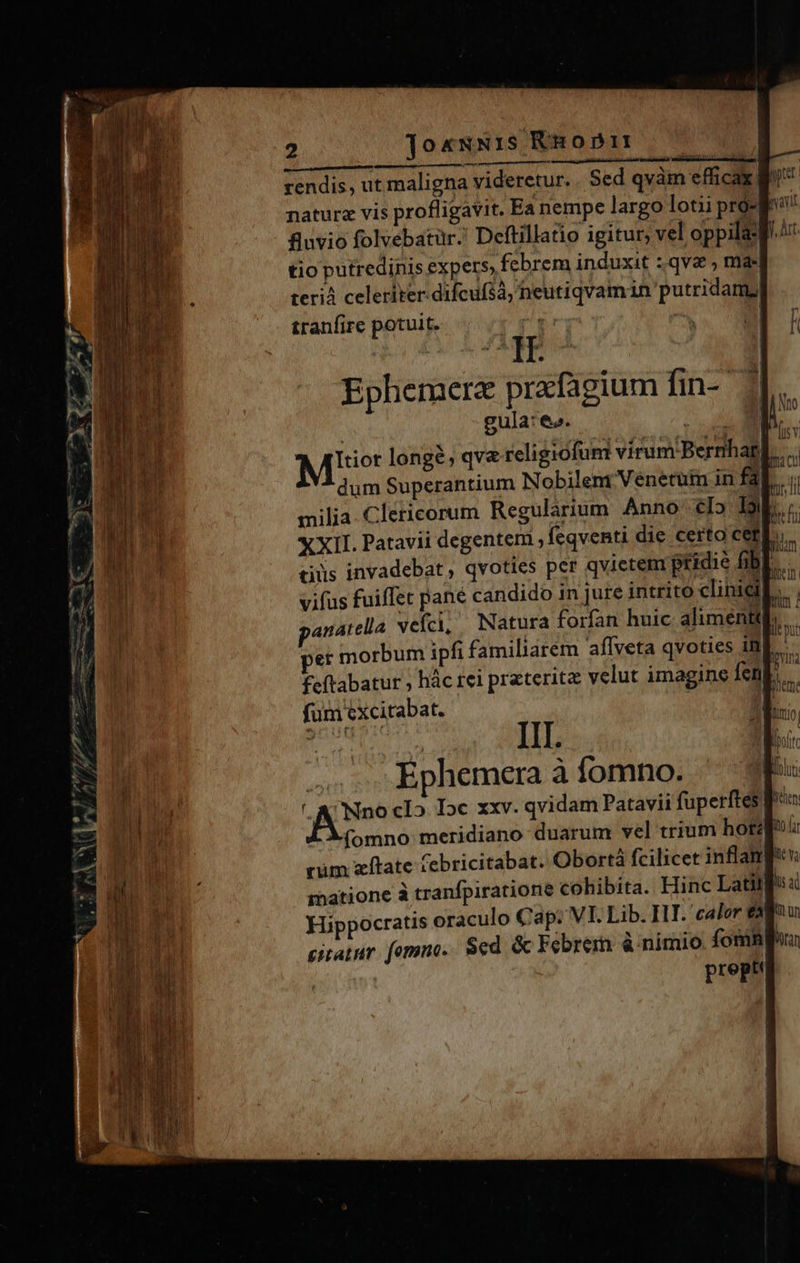 2 JOANNIS RHODII
rendis, ut maligna videretur. Sed qvàm efficax
naturæ vis profligavit. Ea nempe largo lotii pro-
fluvio ſolvebatur. Deſtillatio igitur, vel oppila-
tio putredinis expers, febrem induxit : qvæ, ma-
teriâ celeriter diſcuſsâ, neutiqvam in putridam,
tranſire potuit.
II.
Ephemeræ præſagium ſin-
gulare.
MItior longè, qvæ religioſum virum Bernhar-
dum Superantium Nobilem Venetum in fa-
milia Clericorum Regularium Anno cIↃ IↃ
XXII. Patavii degentem, ſeqventi die certo cer-
tiùs invadebat, qvoties per qvietem pridiè ſibi
viſus fuiſſet pane candido in jure intrito clinici
panatella veſci, Natura forſan huic alimento
per morbum ipſi familiarem aſſveta qvoties in-
feſtabatur, hâc rei præteritæ velut imagine ſen-
ſum excitabat.
III.
Ephemera à ſomno.
ANno cIↃ IↃc xxv. qvidam Patavii ſuperſtes
ſomno meridiano duarum vel trium hora-
rùm æſtate febricitabat. Obortâ ſcilicet inflam-
matione à tranſpiratione cohibita. Hinc Latii
Hippocratis oraculo Cap. VI. Lib. III. calor ex-
citatur ſomno. Sed & Febrem à nimio ſomn
propt